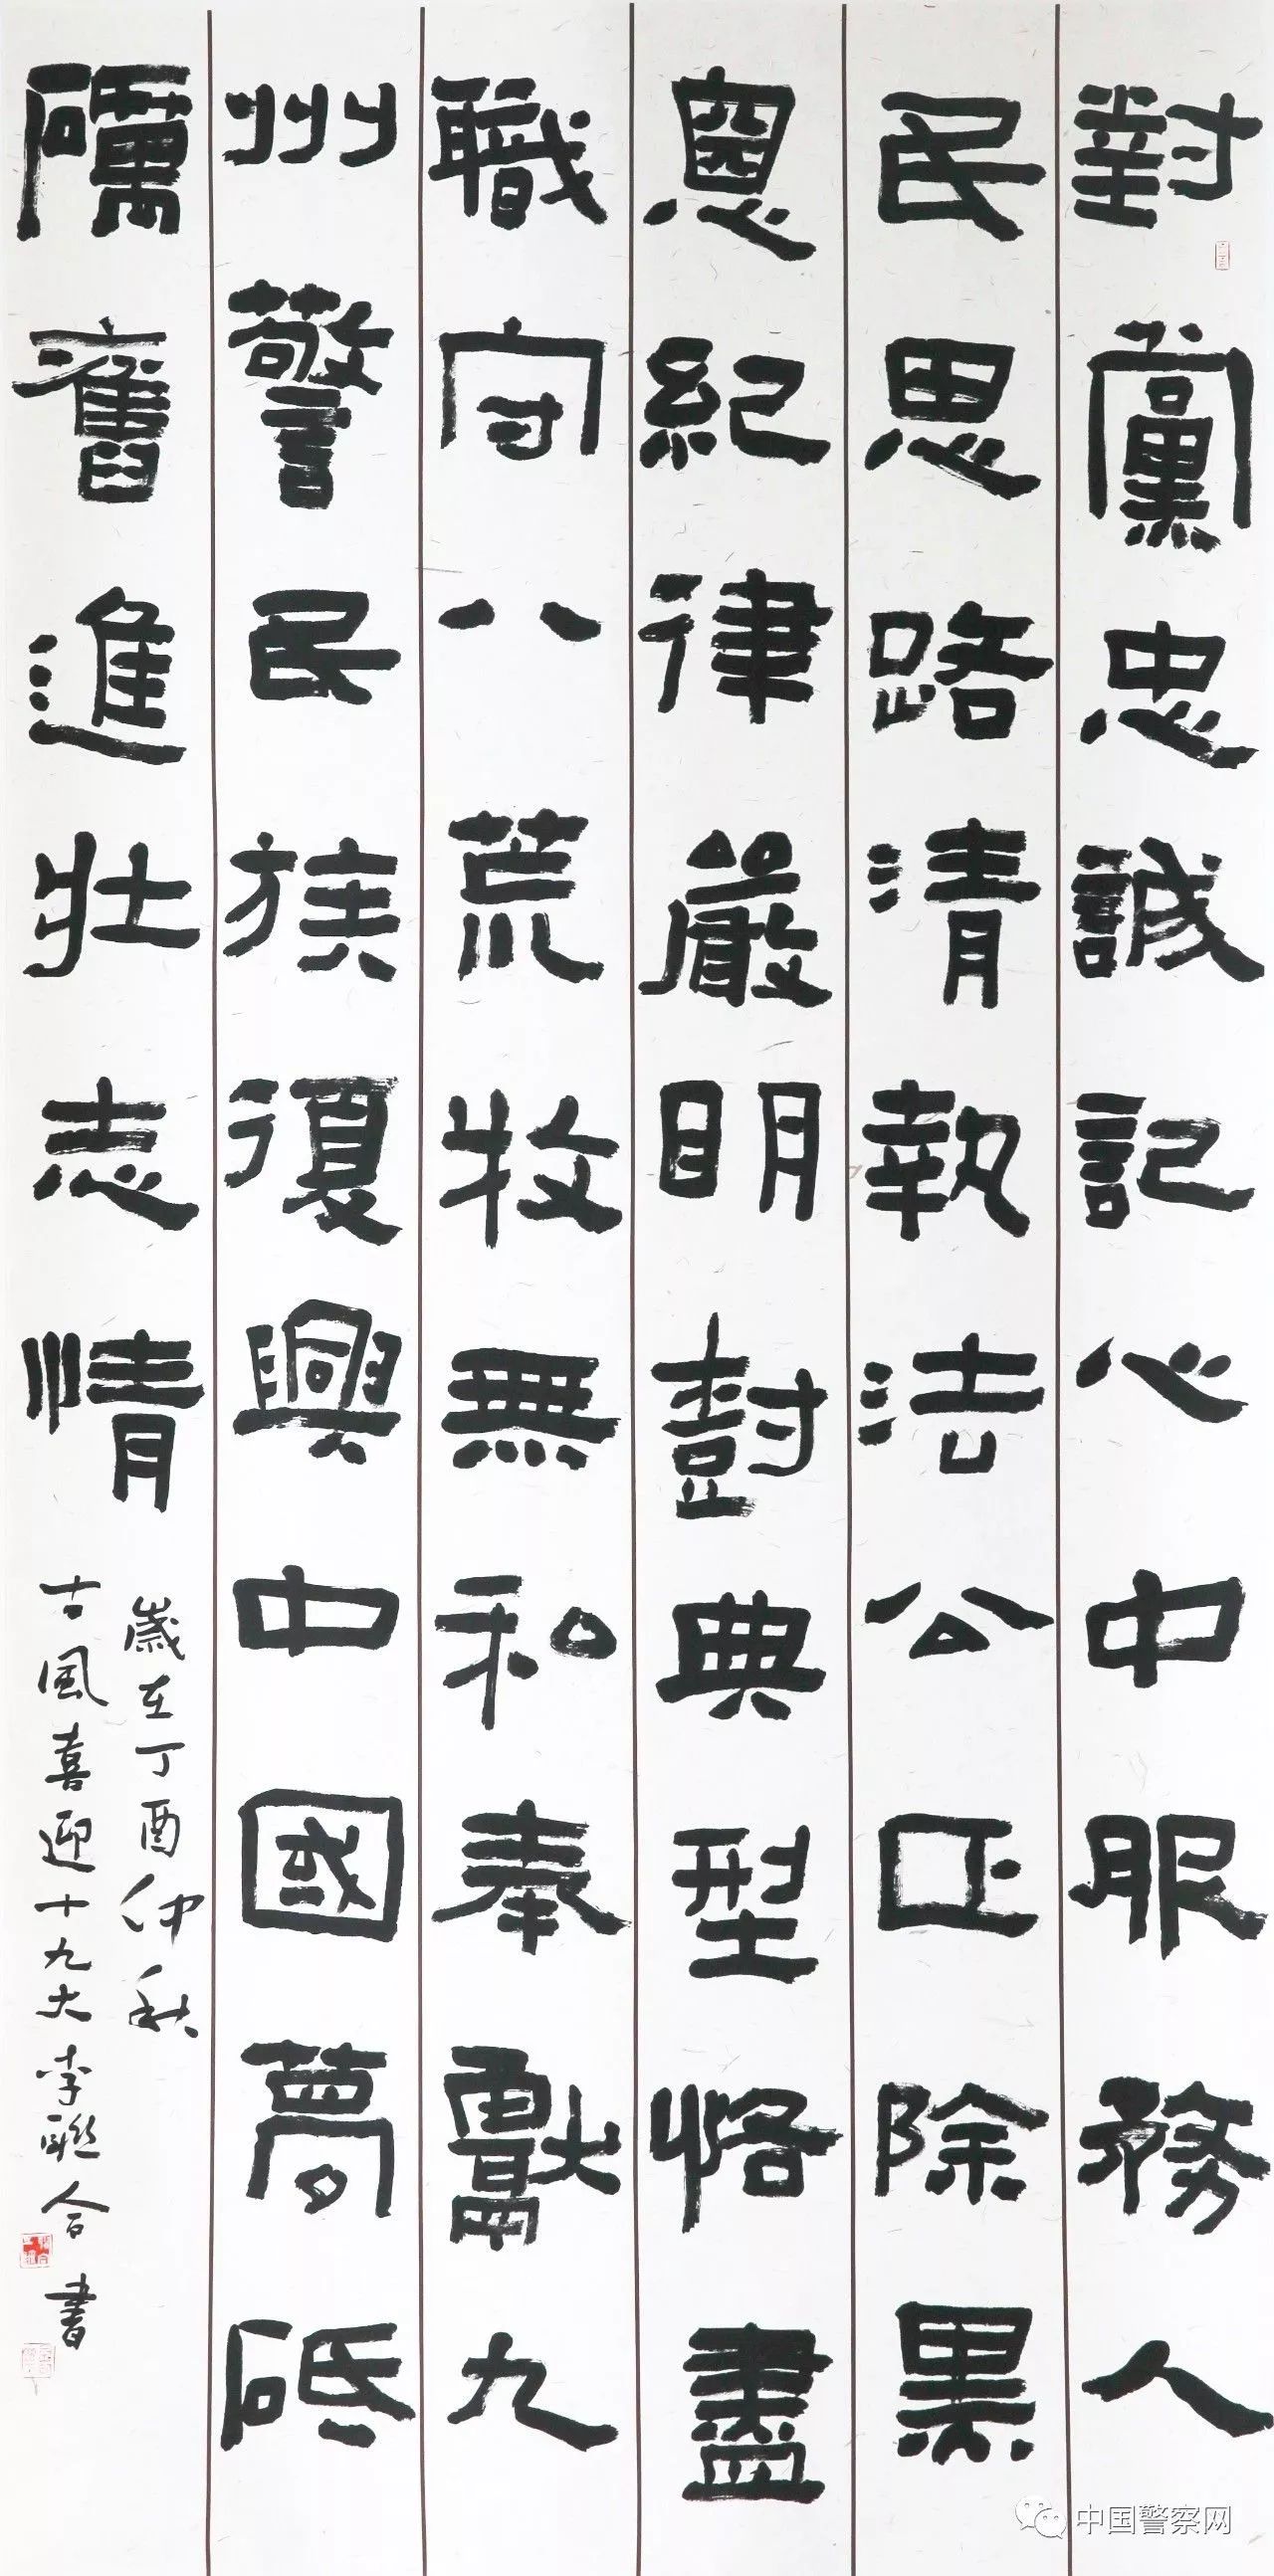 對黨忠誠記心中服務人
民思路清執法公正除黑
惡紀律嚴明樹典型恪盡
職守八荒牧無私奉獻九
州警民族復興中國夢砥
礪奮進壯志情
歲在丁酉仲秋
古風喜迎十九大李聯合書
中国警察网